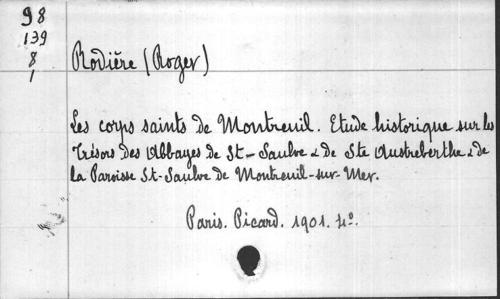 98
139
8
1
Rodière (Roger)
Les corps saints de Montreuil. Etude historique sur les
Trésors des Abbayes de St-Saulve & de Ste Austreberthe & de
la Paroisse St-Saulve de Montreuil-sur-Mer.
Paris. Picard. 1901. 4°.